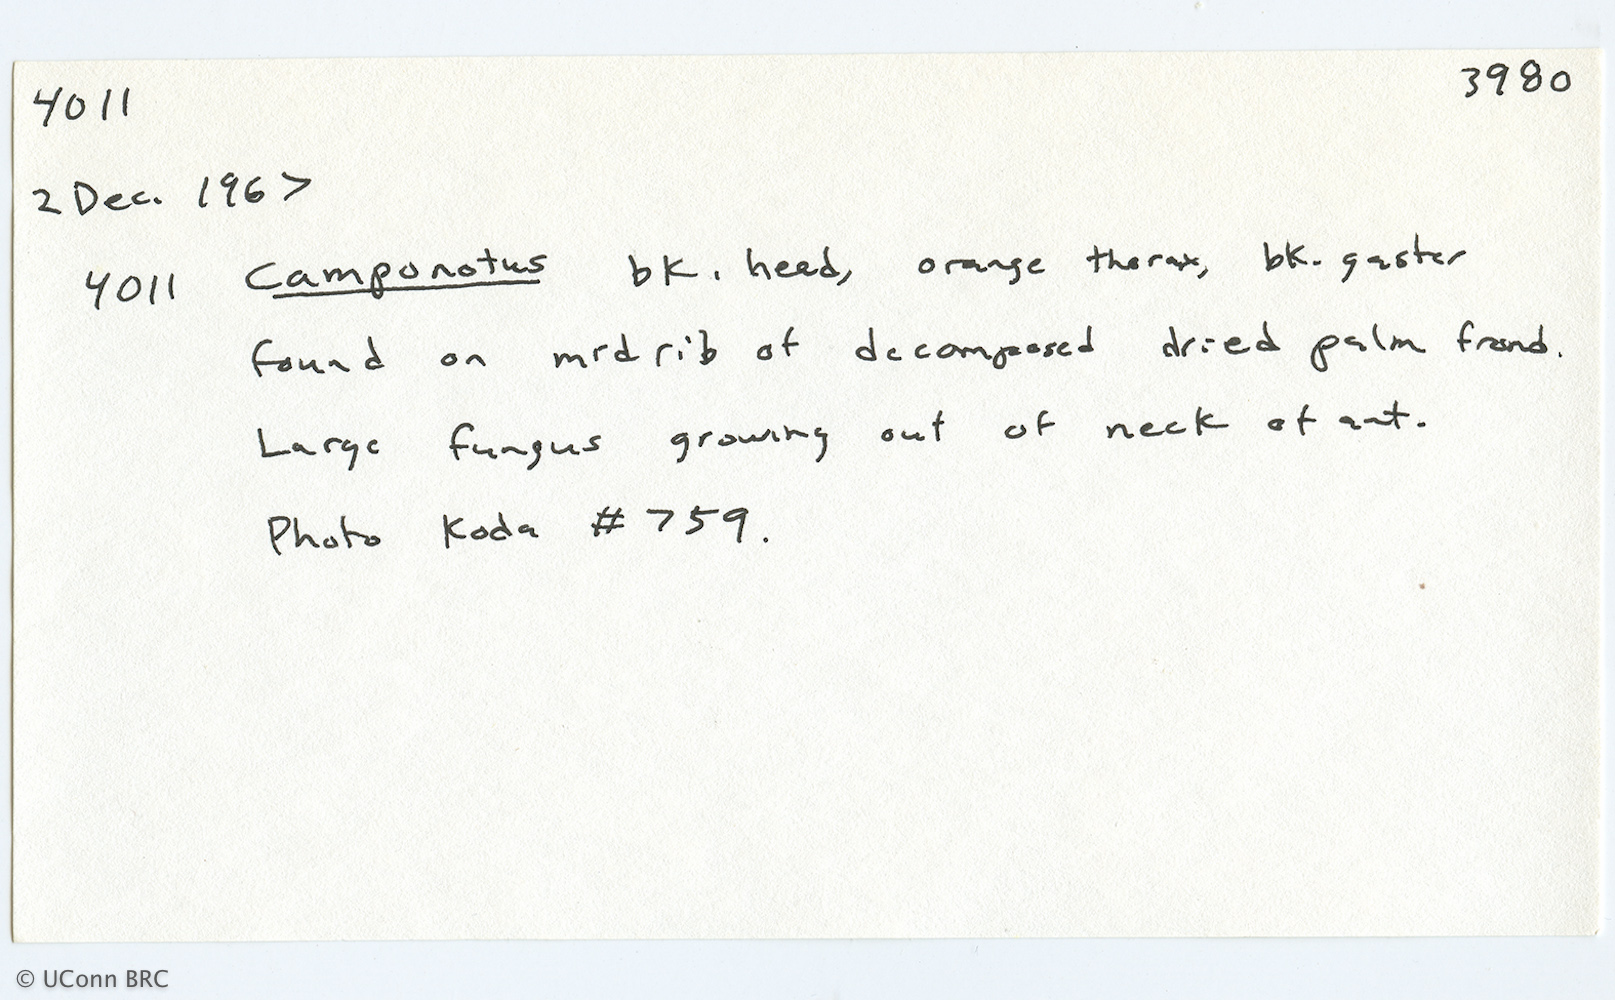 4011
3980
2 Dec. 1967
4011 Camponotus bk. head, orange thorax, bk. gaster
found on midrib of decomposed dried palm frond.
Large fungus growing out of neck of ant.
Photo Koda #759.
© UConn BRC